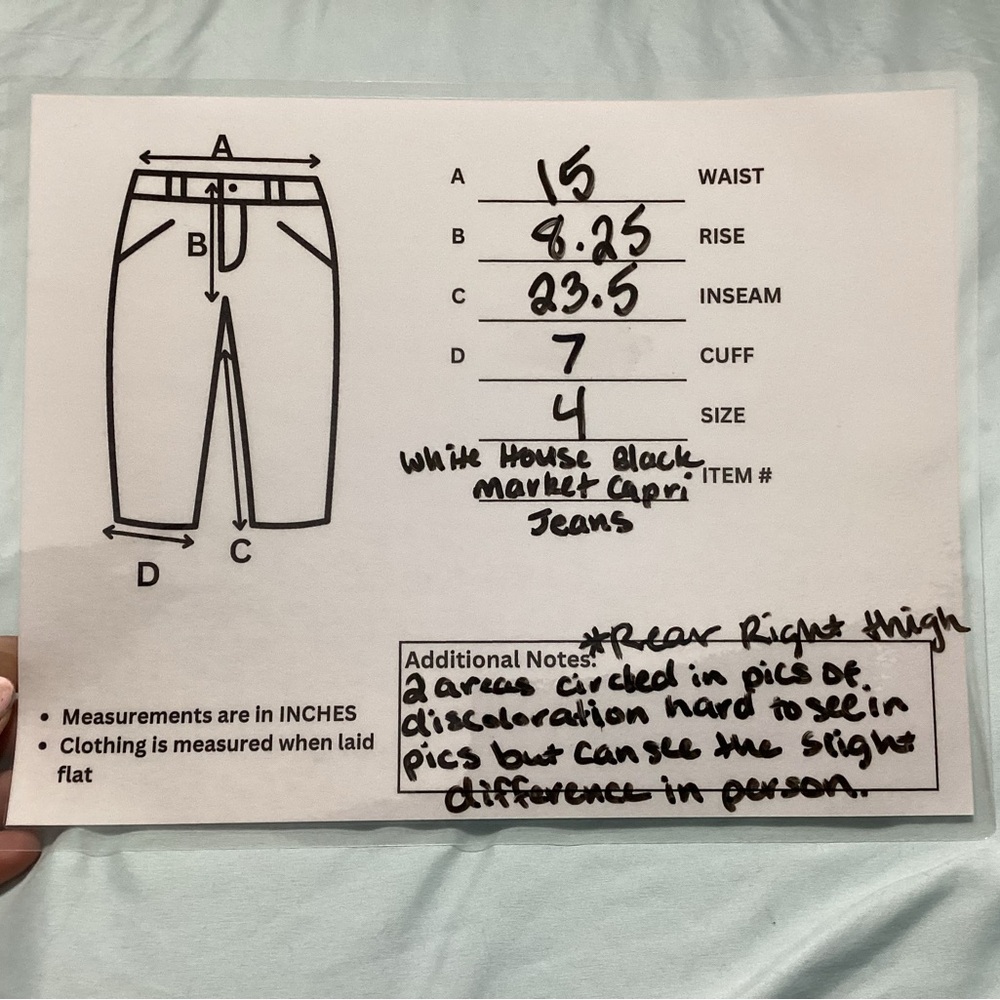 A
B
C
D
A 15 WAIST
B 8.25 RISE
C 23.5 INSEAM
D 7 CUFF
4 SIZE
White House Black
Market Capri ITEM #
Jeans
• Measurements are in INCHES
• Clothing is measured when laid
flat
*Rear Right thigh
Additional Notes:
2 areas circled in pics of
discoloration hard to see in
pics but can see the slight
difference in person.